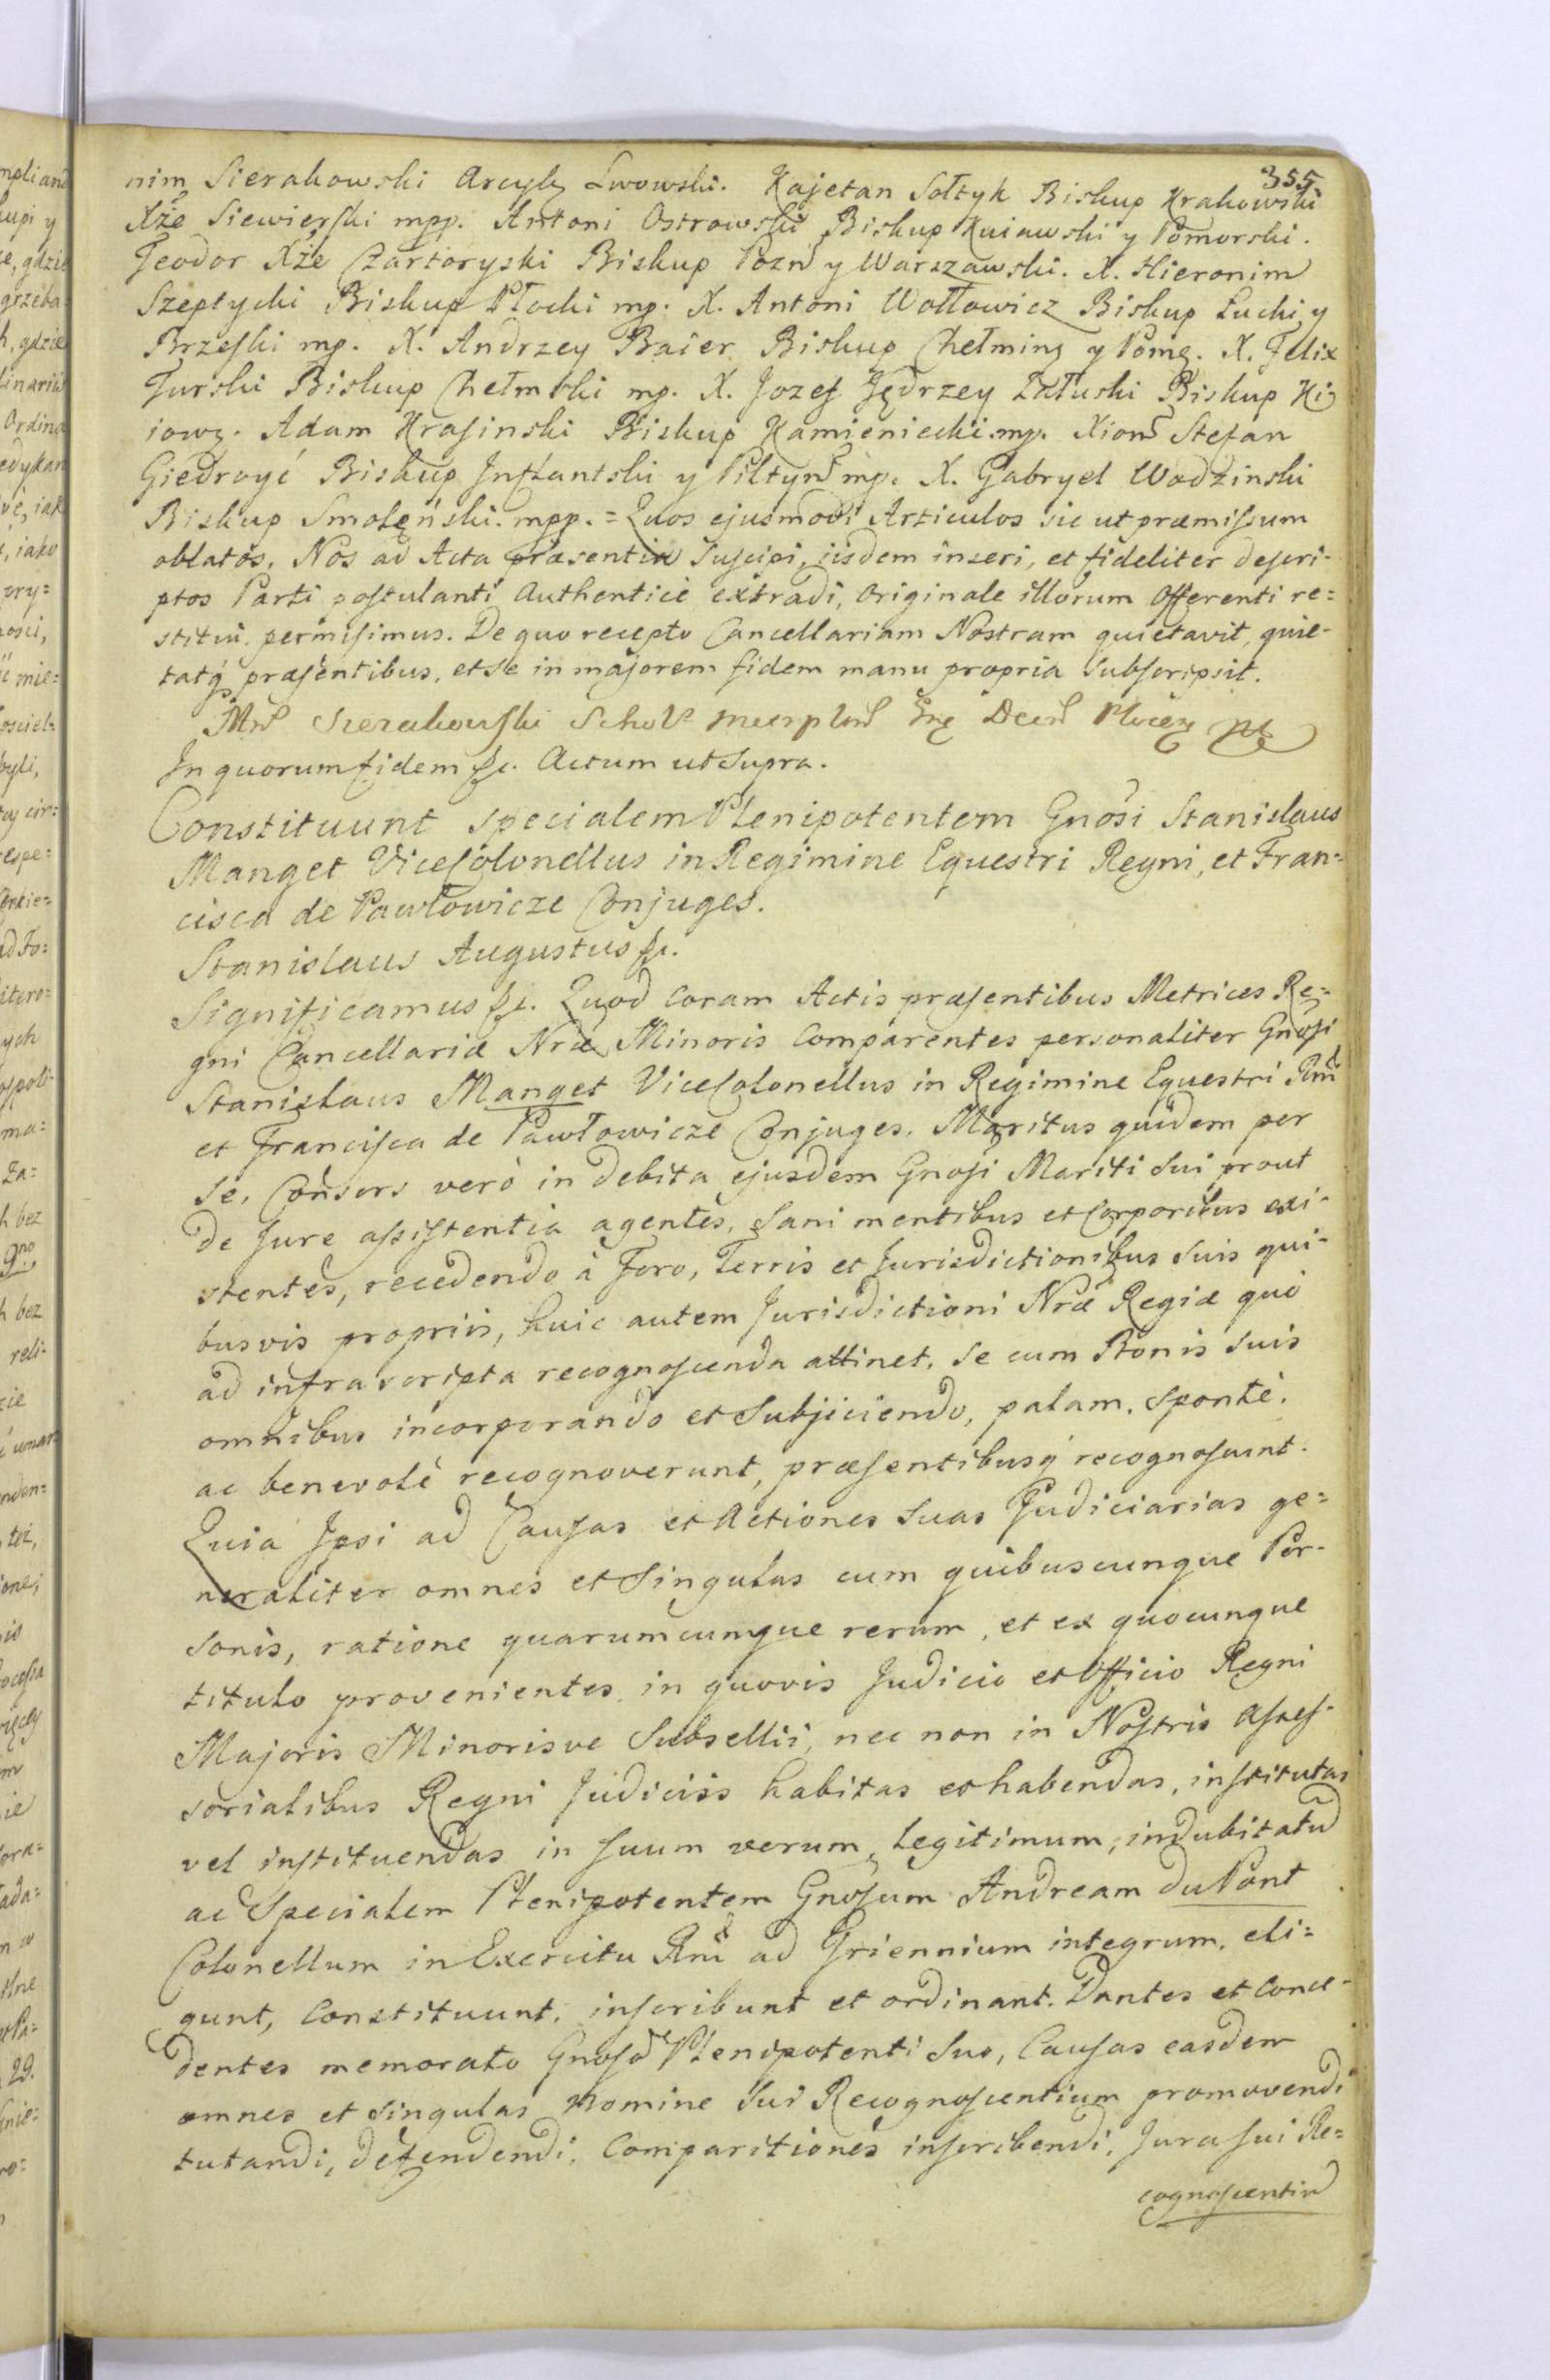 355
nim Sierakowski Arcyb Lwowski. Kajetan Sołtyk Biskup Krakowski
Xże Siewierski mpp. Antoni Ostrowski Biskup Kuiawski y Pomorski.
Teodor Xże Czartoryski Biskup Pozn y Warszawski. X. Hieronim
Szeptycki Biskup Płocki mp. X. Antoni Wołłowicz Biskup Łucki y
Brzeski mp. X. Andrzey Baier Biskup Chełmiń y Pome. X. Felix
Turski Biskup Chełmski mp. X. Jozef Jędrzey Załuski Biskup Ki
iows. Adam Krasinski Biskup Kamieniecki mp. Xiondz Stefan
Giedroyć Biskup Inflantski y Piltyn mp. X. Gabryel Wodzinski
Biskup Smoleński. mpp. = Quos ejusmodi Articulos sic ut præmissum
oblatos, Nos ad Acta præsentia suscipi, iisdem inseri, et fideliter descri-
ptos Parti postulanti Authenticè extradi, Originale illorum Offerenti re=
stitui permisimus. De quo recepto Cancellariam Nostram quietavit, quie-
tatq præsentibus, et se in majorem fidem manu propria subscripsit.
Sierakowski
In quorum fidem &c. Actum ut supra.
Constituunt specialem Plenipotentem Gnosi Stanislaus
Manget ViceColonellus in Regimine Equestri Regni, et Fran-
cisca de Pawłowicze Conjuges.
Stanislaus Augustus &c.
Significamus &c. Quod coram Actis præsentibus Metrices Re=
gni Cancellariæ Nræ Minoris Comparentes personaliter Gnosi
Stanislaus Manget ViceColonellus in Regimine Equestri Rni
et Francisca de Pawłowicze Conjuges. Maritus quidem per
se, Consors verò in debita ejusdem Gnosi Mariti sui prout
de Jure assistentia agentes, sani mentibus et Corporibus exi-
stentes, recedendo à Foro, Terris et Jurisdictionibus suis qui-
busvis propriis, huic autem Jurisdictioni Nræ Regiæ quò
ad infrascripta recognoscenda attinet, se cum Bonis suis
omnibus incorporando et Subjiciendo, palam, sponte,
ac benevolè recognoverunt, præsentibusq recognoscunt.
Quia Ipsi ad Causas et Actiones suas Judiciarias ge=
neraliter omnes et singulas cum quibuscunque Per-
sonis, ratione quarumcunque rerum, et ex quocunque
titulo provenientes, in quovis Judicio et Officio Regni
Majoris Minorisve Subsellii, nec non in Nostris Asses-
sorialibus Regni Judiciis habitas et habendas, institutas
vel instituendas in suum verum, legitimum, indubitatu
ac Specialem Plenipotentem Gnosum Andream du Pont
Colonellum in Exercitu Rni ad Triennium integrum, eli=
gunt, Constituunt, inscribunt et ordinant. Dantes et Conce-
dentes memorato Gnoso Plenipotenti suo, Causas easdem
omnes et singulas Nomine sui Recognoscentium promovendi
tutandi, defendendi, Comparitiones inscribendi, Jura sui Re=
cognoscentiu